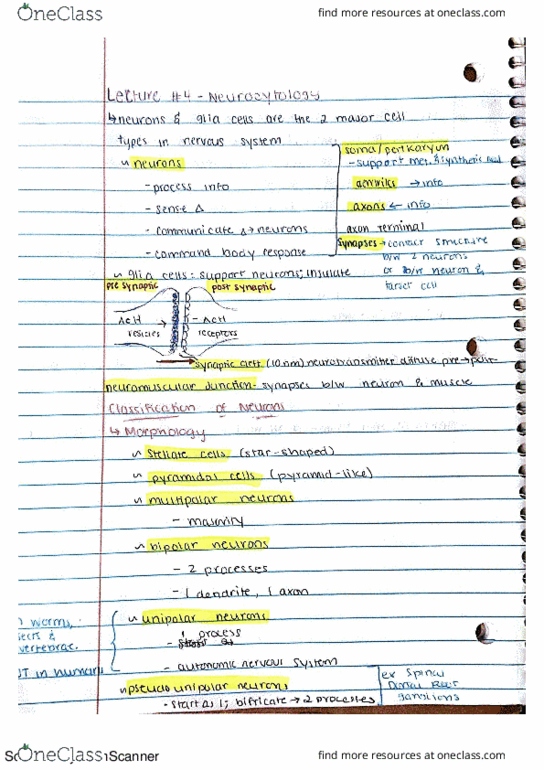 OneClass
find more resources at oneclass.com
Lecture #4 - Neurocytology
↳ neurons & glia cells are the 2 major cell
types in nervous system
neurons
- process info
- sense Δ
- communicate Δ → neurons
- command body response
soma/perikaryon
- support met. & synthetic
→ info
axons ← info
axon terminal
Synapses → contact structure
b/w 2 neurons
or b/w neuron &
target cell
glia cells: support neurons; insulate
pre synaptic
post synaptic
AcH
vesicles
AcH
receptors
synaptic cleft (10 nm) neurotransmitter diffuse pre → post
neuromuscular junction - synapses b/w neuron & muscle
Classification of Neurons
↳ Morphology
Stellate cells (star-shaped)
pyramidal cells (pyramid-like)
multipolar neurons
- majority
bipolar neurons
- 2 processes
- 1 dendrite, 1 axon
unipolar neurons
- 1 process
- autonomic nervous system
worms,
&
vertebrae.
in human
pseudo unipolar neurons
- start as 1; bifricate → 2 processes
ex Spinal
Dorsal Root
ganglions
OneClass
Scanner
find more resources at oneclass.com